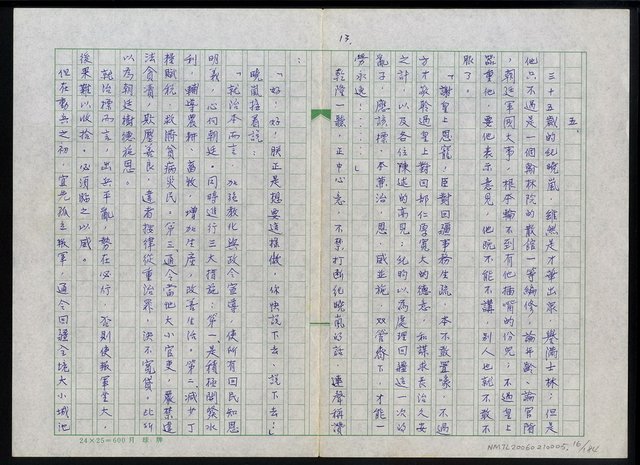 13
五、
三十五歲的紀曉嵐,雖然是才華出眾、譽滿士林;但是
他只不過是一個翰林院的散館一等編修,論年齡、論官階
,朝廷軍國大事,根本輪不到有他插嘴的份兒;不過皇上
器重他,要他表示意見,他既不能不講,別人也就不敢不
服了。
「謝皇上恩寵,臣對回疆事務生疏,本不敢置喙,不過
方才敬聆過皇上對回部仁厚寬大的德意,和謀求長治久安
之計,以及各位陳述的高見;紀昀以為處理回疆這一次的
亂子,應該標、本兼治,恩、威並施,双管齊下,才能一
勞永逸……」
乾隆一聽,正中心意,不禁打斷紀曉嵐的話,連聲稱讚
:
「好,好,朕正是想要這樣做,你快說下去、說下去!」
曉嵐接著說:
「就治本而言,加強教化與政令宣導,使所有回民知恩
明義,心向朝廷。同時進行三大措施:第一、是積極開發水
利,輔導農耕、畜牧,增加生產,改善生活。第二、減少丁
糧賦稅,救濟貧病災民。第三、通令當地大小官吏,嚴禁違
法貪瀆,欺壓善良,違者按律從重治罪,決不寬貸。此所
以為朝廷樹德施恩。
就治標而言,出兵平亂,勢在必行,否則使叛軍坐大,
後果難以收拾,必須臨之以威。
但在剿兵之初,宜先孤立叛軍,通令回疆全境大小城池
24×25=600 月球牌
NMTL20060210005, 16/184